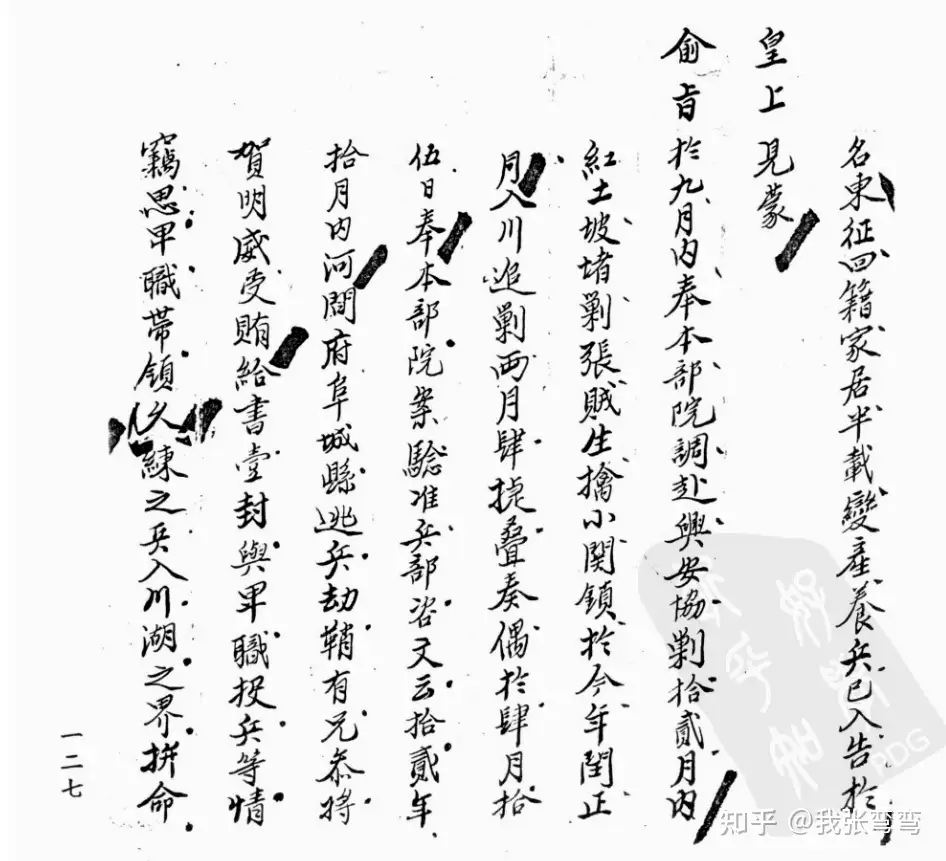 名東征回籍家居半載變產養兵已入告於
皇上見蒙
俞旨於九月內奉本部院調赴興安協剿拾貳月內
紅土坡堵剿張賊生擒小関鎖於今年閏正
月入川追剿兩月肆捷疊奏偶於肆月拾
伍日奉本部院案驗准兵部咨文云拾貳年
拾月內河間府阜城縣逃兵劫鞘有兄叅將
賀明威受賄給書壹封與卑職投兵等情
竊思卑職帶領久練之兵入川湖之界拚命
一二七
知乎 @我张弯弯
PDG